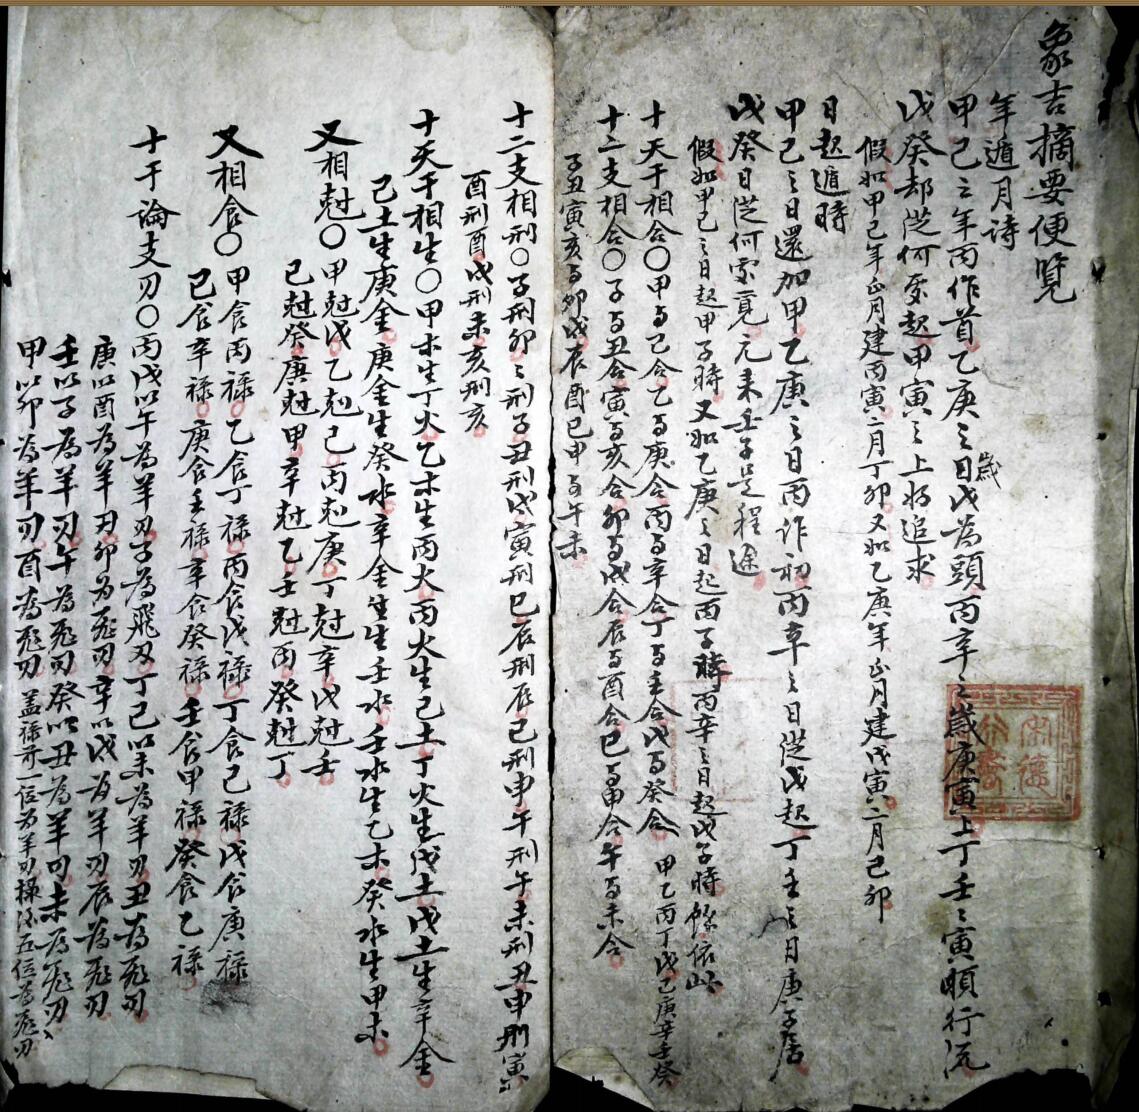 象吉摘要便覽
年遁月詩
甲己之年丙作首乙庚之歲戊為頭丙辛之歲庚寅上丁壬壬寅順行流
戊癸却從何處起甲寅之上好追求
假如甲己年正月建丙寅二月丁卯又如乙庚年正月建戊寅二月己卯
日起遁時
甲己之日還加甲乙庚之日丙作初丙辛之日從戊起丁壬之日庚子居
戊癸日從何處覓元來壬子是程途
假如甲己之日起甲子時又如乙庚之日起丙子時丙辛之日起戊子時餘依此
十天干相合〇甲与己合乙与庚合丙与辛合丁与壬合戊与癸合 甲乙丙丁戊己庚辛壬癸
十二支相合〇子与丑合寅与亥合卯与戌合辰与酉合巳与申合午与未合
子丑寅亥与卯戌辰酉巳申与午未
十二支相刑〇子刑卯卯刑子丑刑戌寅刑巳辰刑辰巳刑申午刑午未刑丑申刑寅
酉刑酉戌刑未亥刑亥
十天干相生〇甲木生丁火乙木生丙火丙火生己土丁火生戊土戊土生辛金
己土生庚金庚金生癸水辛金生壬水壬水生乙木癸水生甲木
又相尅〇甲尅戊乙尅己丙尅庚丁尅辛戊尅壬
己尅癸庚尅甲辛尅乙壬尅丙癸尅丁
又相食〇甲食丙祿乙食丁祿丙食戊祿丁食己祿戊食庚祿
己食辛祿庚食壬祿辛食癸祿壬食甲祿癸食乙祿
十干論支刃〇丙戊以午為羊刃子為飛刃丁己以未為羊刃丑為飛刃
庚以酉為羊刃卯為飛刃辛以戌為羊刃辰為飛刃
壬以子為羊刃午為飛刃癸以丑為羊刃未為飛刃
甲以卯為羊刃酉為飛刃蓋祿前一位為羊刃後五位為飛刃